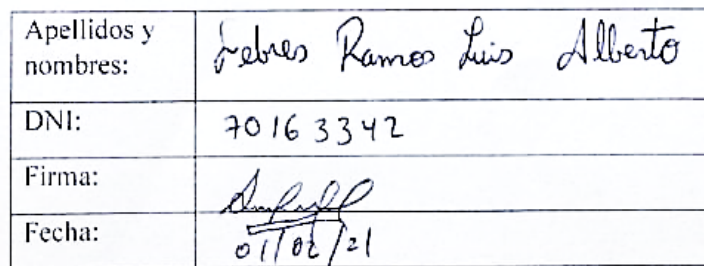 Apellidos y
nombres:
Febres Ramos Luis Alberto
DNI:
70163342
Firma:
Fecha:
01/02/21